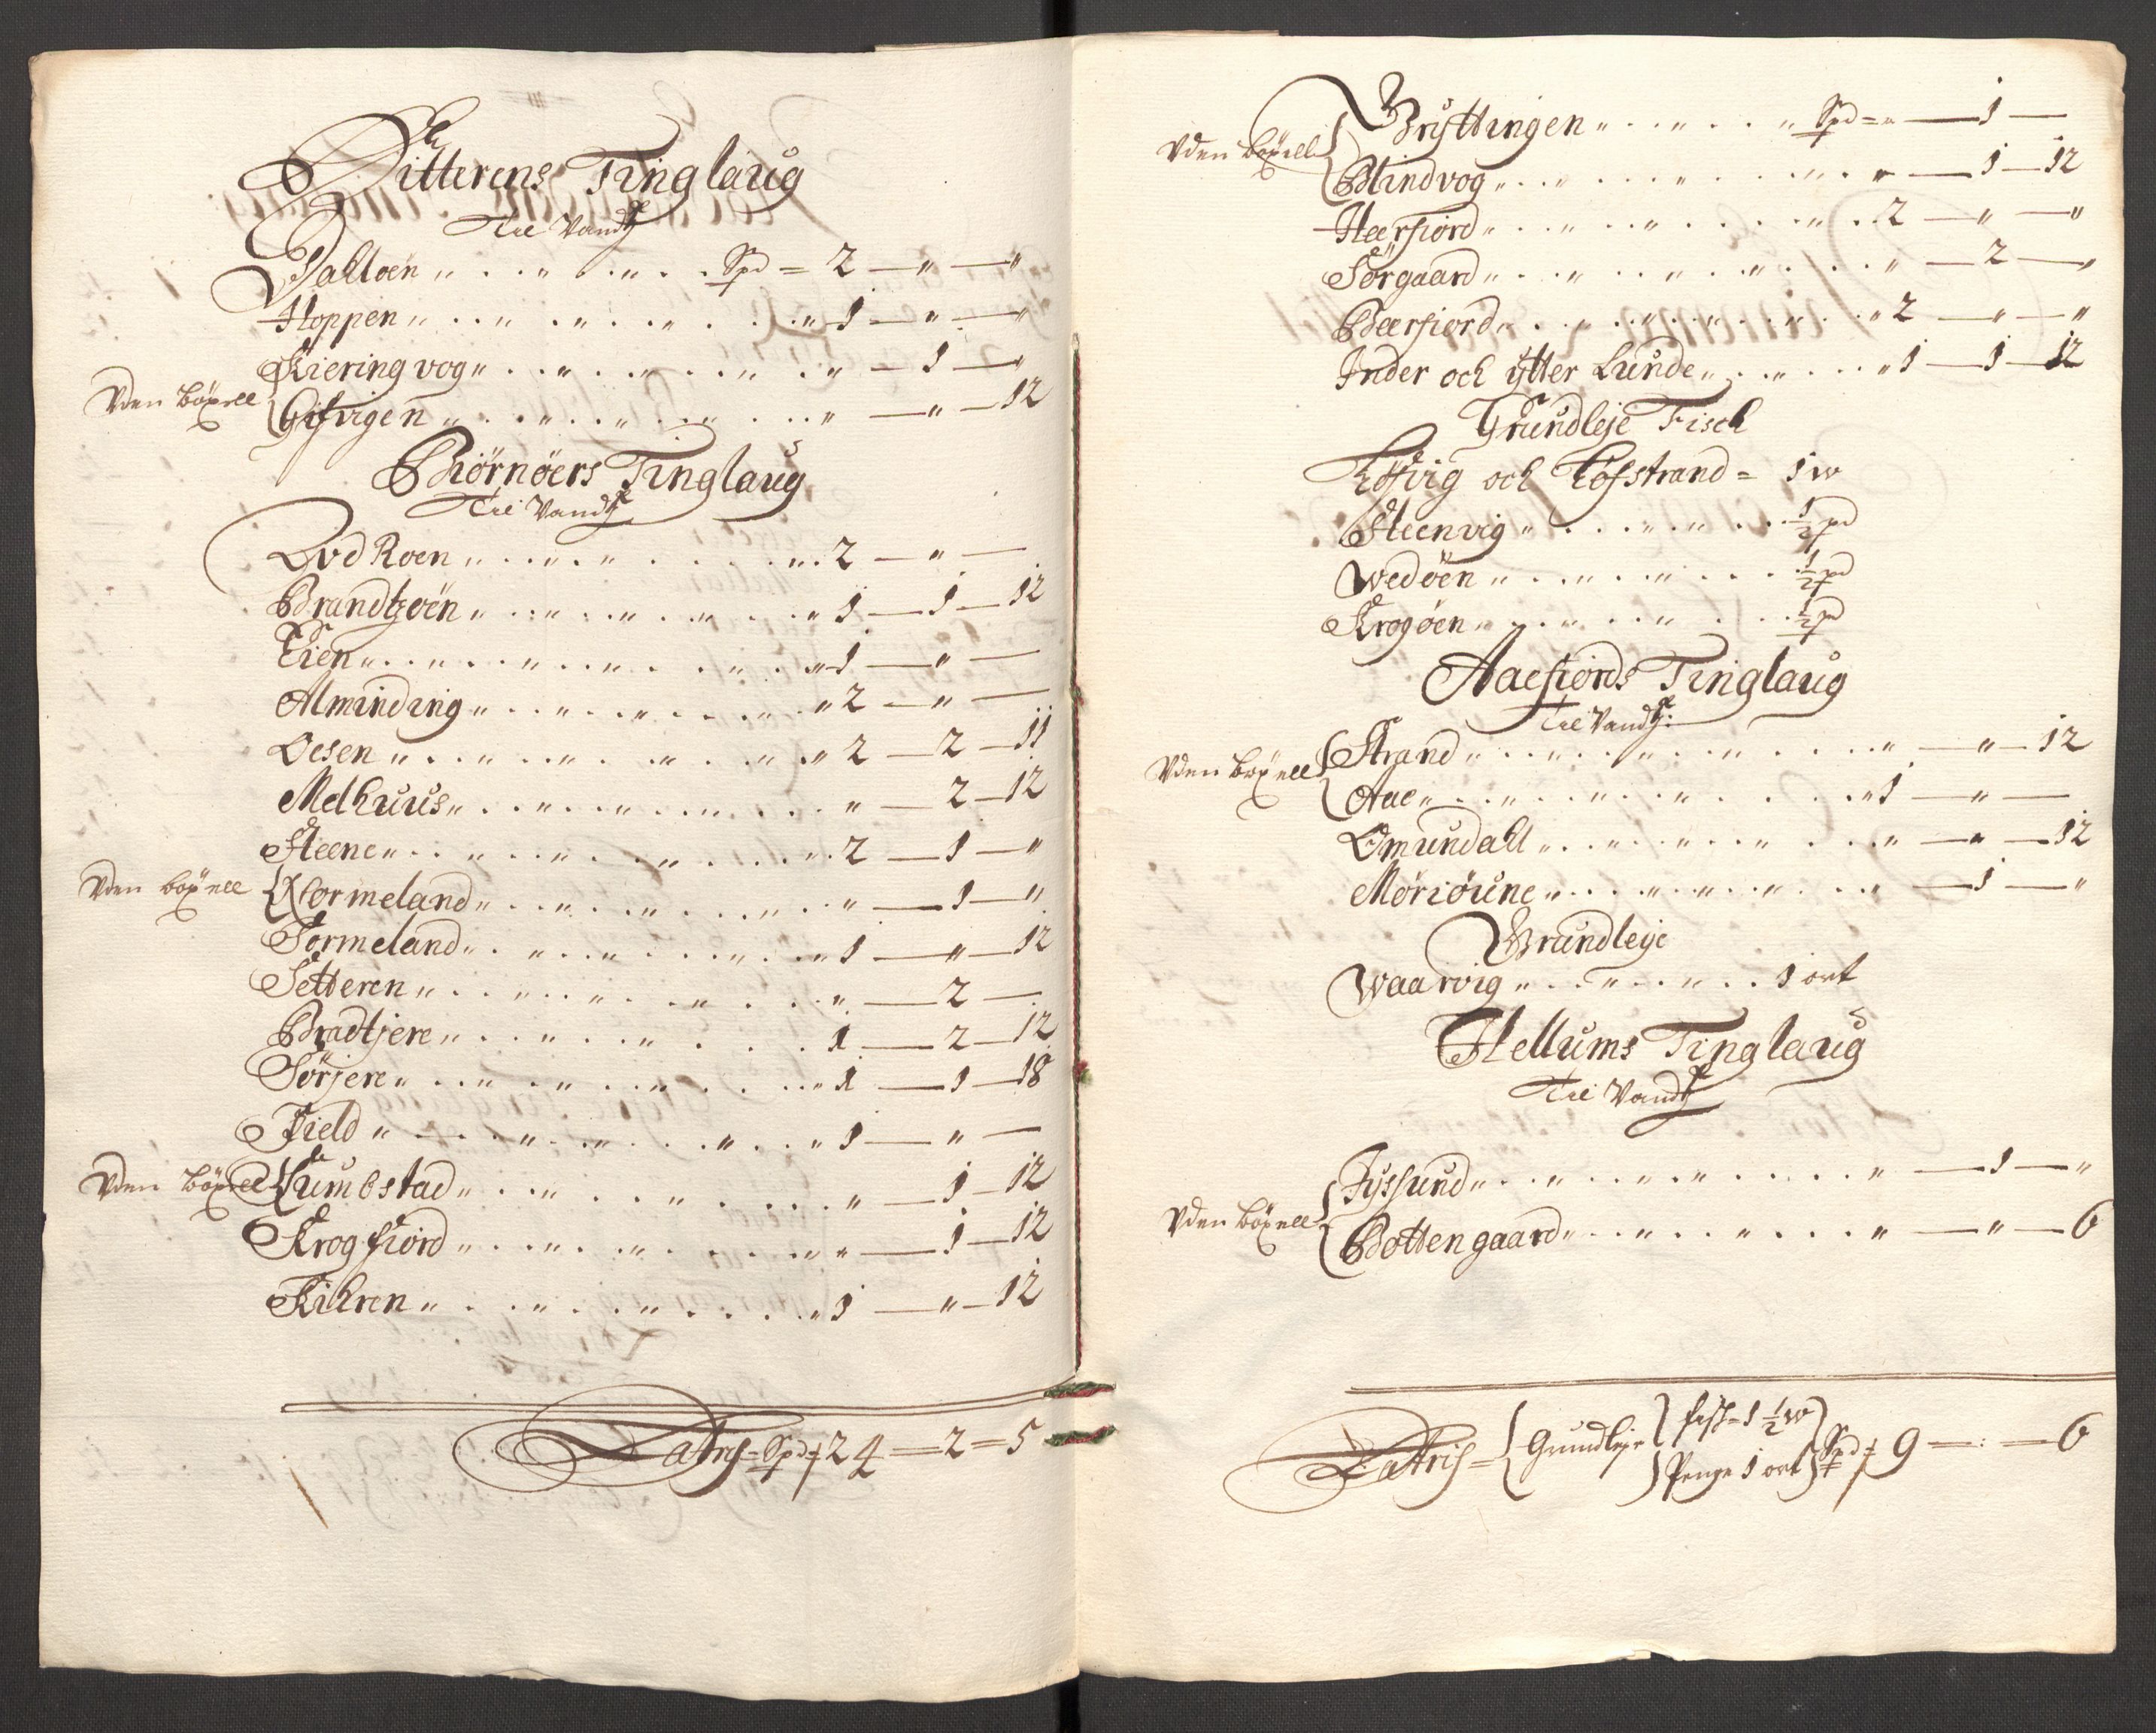 Hitterens Tinglaug
Til Vandz
Daltoen „ . . „ . „ . . Spd = 2 — „ — „
Hoppen „ . . „ . „ . „ . . „ 1 — „ — „
Kieringvog „ . . „ . „ . „ . „ — 1 — „
Vden böxell Gifvigen „ . . „ . . „ . . „ — „ — 12
Biørnøers Tinglaug
Til Vandz
Ovd Roen „ . . „ . „ . . . „ . 2 — „ —
Brandtzøen „ . . „ . „ . „ . . „ 1 — 1 — 12
Eien „ . . „ . . „ . „ . . „ 1 — „ —
Alminding „ . . „ . „ . . . „ 2 — „ —
Oesen „ . . „ . „ . „ . „ „ 2 — 2 — 11
Melhuus „ . . „ . . „ . . . „ — 2 — 12
Steene „ . . „ . „ . „ . . „ . 2 — 1 — „
Vden böxell Normeland „ . . „ . „ . . „ . „ — 1 — „
Sørmeland „ . „ . „ . . „ . . „ 1 — „ — 12
Setteren „ . . „ . „ . „ . . „ — 2 —
Bradtjere „ . . „ . „ . . . 1 — 2 — 12
Sørjere „ . . „ . „ . „ . . „ 1 — 1 — 18
Field „ . . . „ . „ . „ . . „ 1 — „ —
Vden böxell Humbstad „ . . „ . . „ . . . „ — 1 — 12
Krogfiord „ . . „ . „ . . . „ „ — 1 — 12
Kihren „ . . „ . „ . . . „ 1 — „ — 12
Latris = Spd 24 = 2 = 5
Bryttingen „ . . „ . . „ Spd = „ — 1 —
Vden böxell
Blindvog „ . . „ . . . . „ . „ — 1 — 12
Heerfiord „ . . „ . . „ . . . „ . 2 — „ — „
Sørgaard „ . . „ . „ . „ . . . „ — 2 — „
Beerfiord „ . . „ . „ . „ . . „ 2 — „ — „
Inder och ytter Lunde „ . . „ . . . „ 1 — 1 — 12
Grundleje Fisch
Høfvig och Høfstrand = 1 w
Steenvig „ . . . „ . „ . . ½ pd
Wedöen „ . . „ . „ . . . ½ pd
Krogöen „ . . „ . . „ . . . ½ pd
Aaefiords Tinglaug
Til Vandz:
Strand „ . . „ . „ . „ . . . „ — „ — 12
Vden böxell
Aae „ . . „ . . „ . „ . . . „ 1 — „ —
Omundall „ . . „ . „ . „ . . „ — „ — 12
Møriøune „ . . „ . „ . „ . . „ — 1 — „
Grundleye
Waarvig „ . . „ . . „ . . 1 ort
Hellums Tinglaug
Til Vandz
Jyssund „ . . „ . „ . „ . . . „ — 1 — „
Vden böxell
Bottengaard „ . . „ . . „ . . . „ — „ — 6
Latris = Grundleje fisk = 1 ½ w Penge 1 ort Spd 9 — : — 6